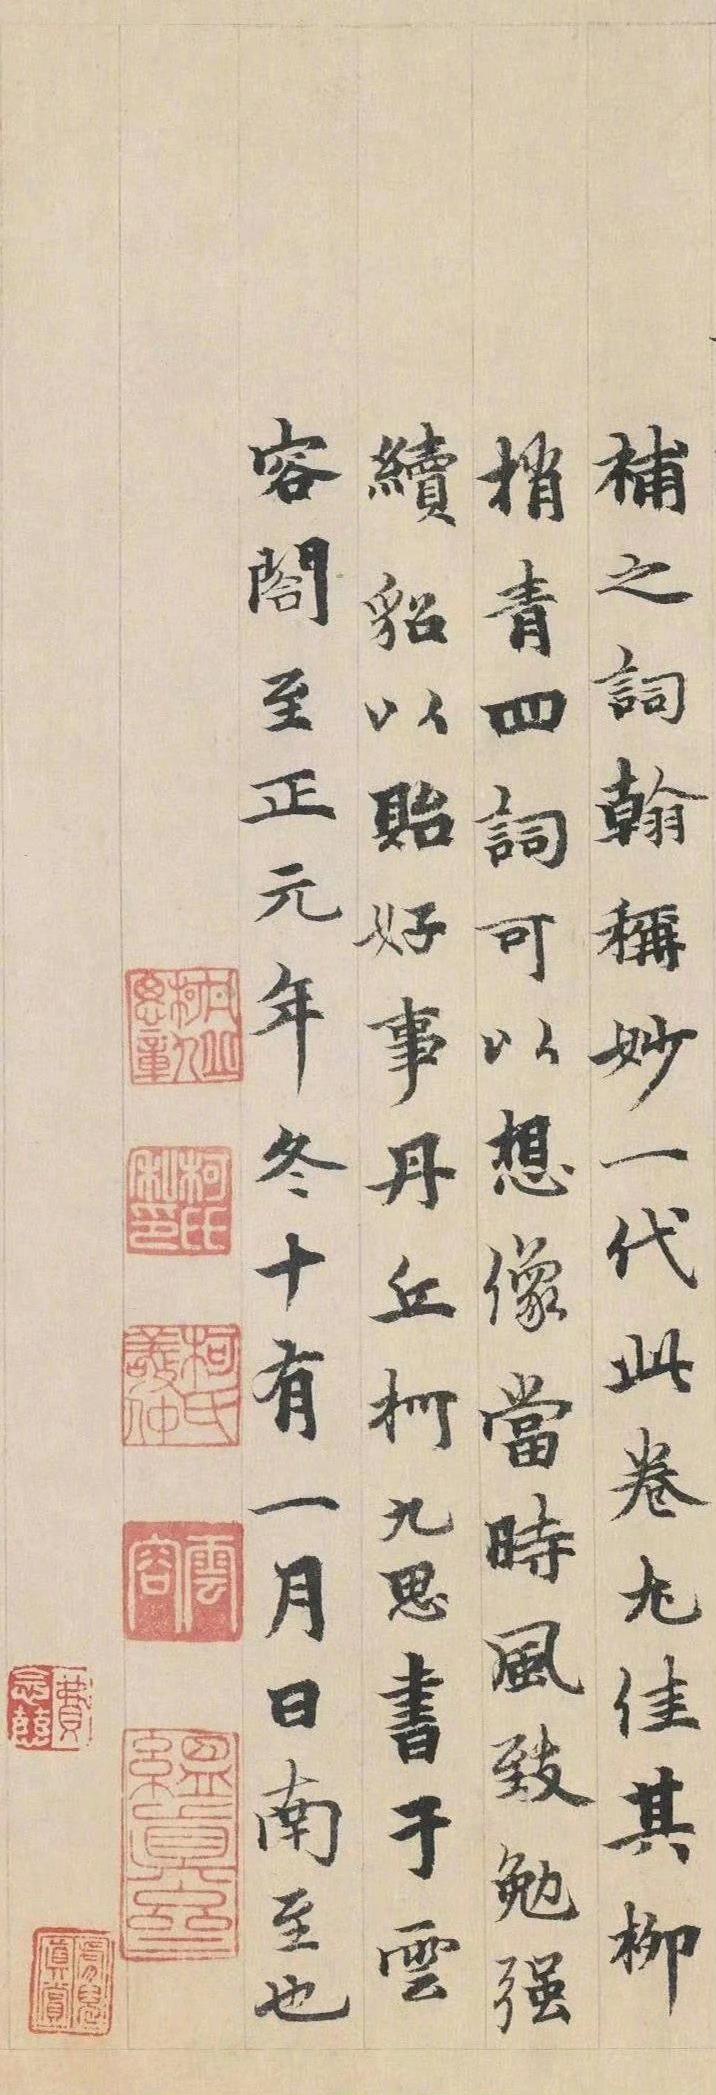 補之詞翰稱妙一代此卷尤佳其柳
梢青四詞可以想像當時風致勉强
續貂以貽好事丹丘柯九思書于雲
容閣至正元年冬十有一月日南至也
丹丘柯九思章
柯氏私印
柯氏敬仲
雲容
縕真齋
費念慈